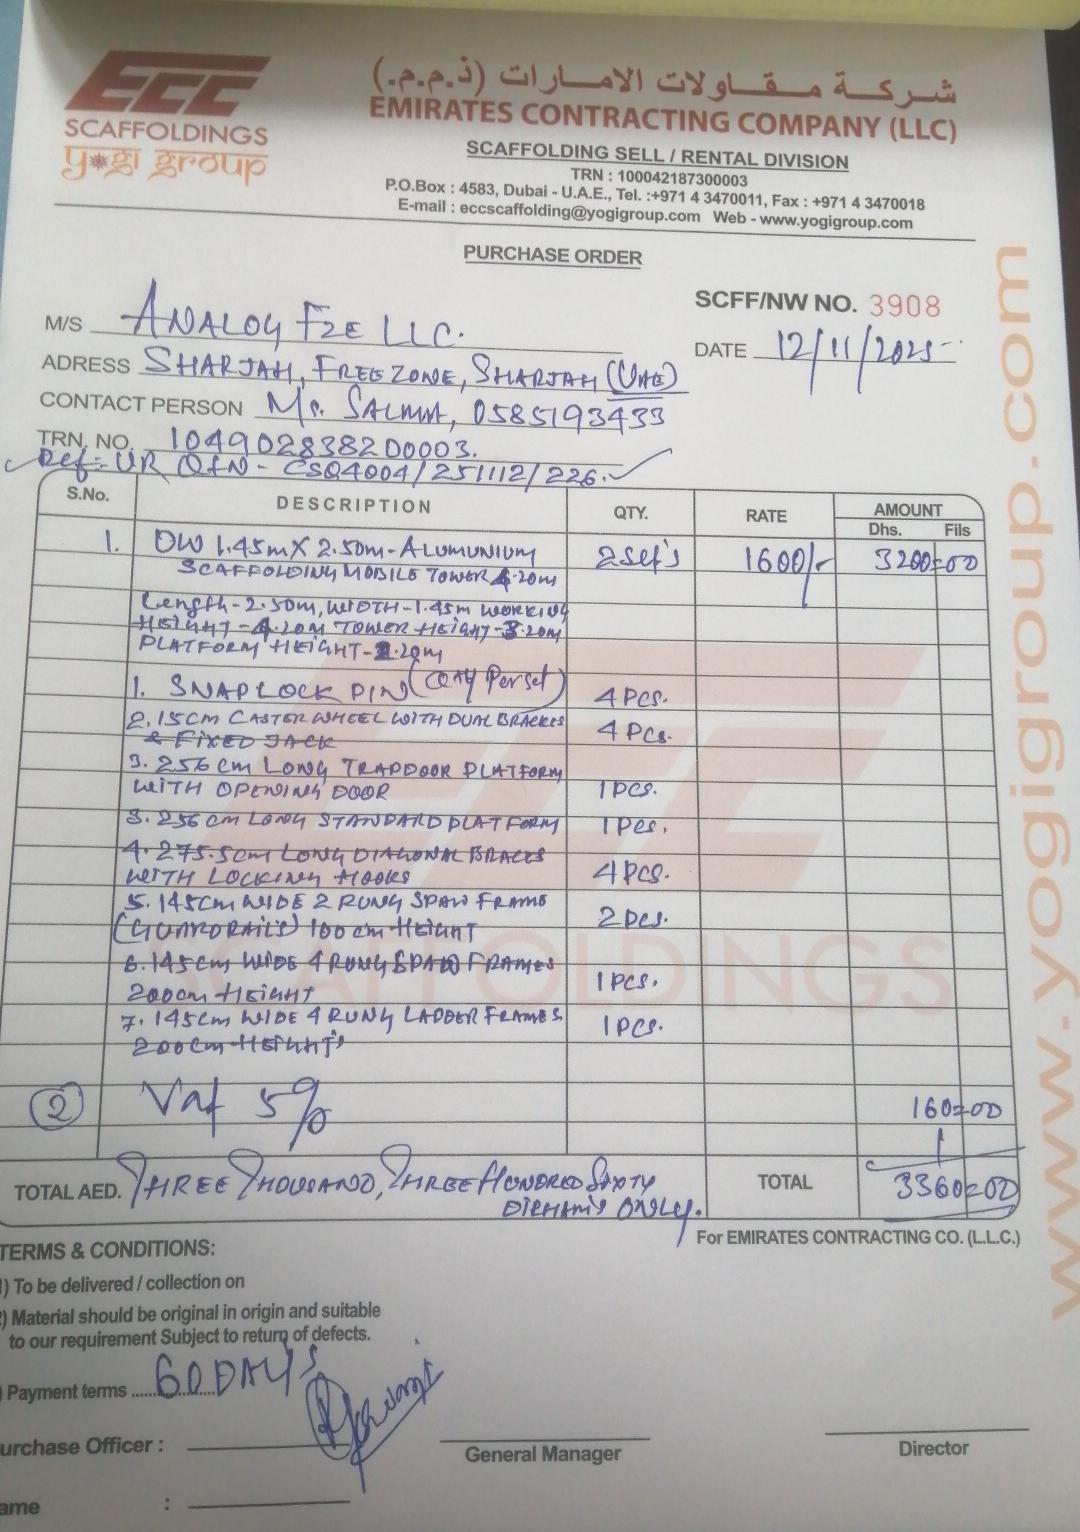 ECC
SCAFFOLDINGS
yogi group
شركة مقاولات الامارات (ذ.م.م.)
EMIRATES CONTRACTING COMPANY (LLC)
SCAFFOLDING SELL / RENTAL DIVISION
TRN : 100042187300003
P.O.Box : 4583, Dubai - U.A.E., Tel. :+971 4 3470011, Fax : +971 4 3470018
E-mail : eccscaffolding@yogigroup.com Web - www.yogigroup.com
PURCHASE ORDER
SCFF/NW NO. 3908
M/S ANALOG FZE LLC.
DATE 12/11/2025
ADRESS SHARJAH, FREEZONE, SHARJAH (UAE)
CONTACT PERSON Ms. SALMA, 0585193433
TRN. NO. 104902838200003.
Ref:- UR QTN - CSQ4004/251112/226.
S.No. DESCRIPTION QTY. RATE AMOUNT
Dhs. Fils
1. DW 1.45m X 2.50m - ALUMUNIUM 2 Set's 1600/- 3200=00
SCAFFOLDING MOBILE TOWER 4.20m
Length-2.50m, WIDTH-1.45m WORKING
HEIGHT-4.20M TOWER HEIGHT-3.20m
PLATFORM HEIGHT-2.20m
1. SNAPLOCK PIN (QTY Per set) 4 Pcs.
2. 15CM CASTER WHEEL WITH DUAL BRACKES 4 Pcs.
& FIXED JACK
3. 256 cm LONG TRAPDOOR PLATFORM
WITH OPENING DOOR 1 Pcs.
3. 256 cm LONG STANDARD PLATFORM 1 Pcs.
4. 275.5cm LONG DIAGONAL BRACES
WITH LOCKING HOOKS 4 Pcs.
5. 145cm WIDE 2 RUNG SPAN FRAME 2 Pcs.
(GUARDRAILS) 100 cm HEIGHT
6. 145cm WIDE 4 RUNG SPAN FRAMES 1 Pcs.
200cm HEIGHT
7. 145cm WIDE 4 RUNG LADDER FRAMES 1 Pcs.
200cm HEIGHT's
2 Vat 5% 160=00
TOTAL AED. THREE THOUSAND, THREE HUNDRED SIXTY TOTAL 3360=00
DIRHAM'S ONLY.
For EMIRATES CONTRACTING CO. (L.L.C.)
TERMS & CONDITIONS:
) To be delivered / collection on
) Material should be original in origin and suitable
to our requirement Subject to return of defects.
) Payment terms ........ 60 DAYS
urchase Officer :
General Manager
Director
ame :
www.yogigroup.com
ECC
SCAFFOLDINGS